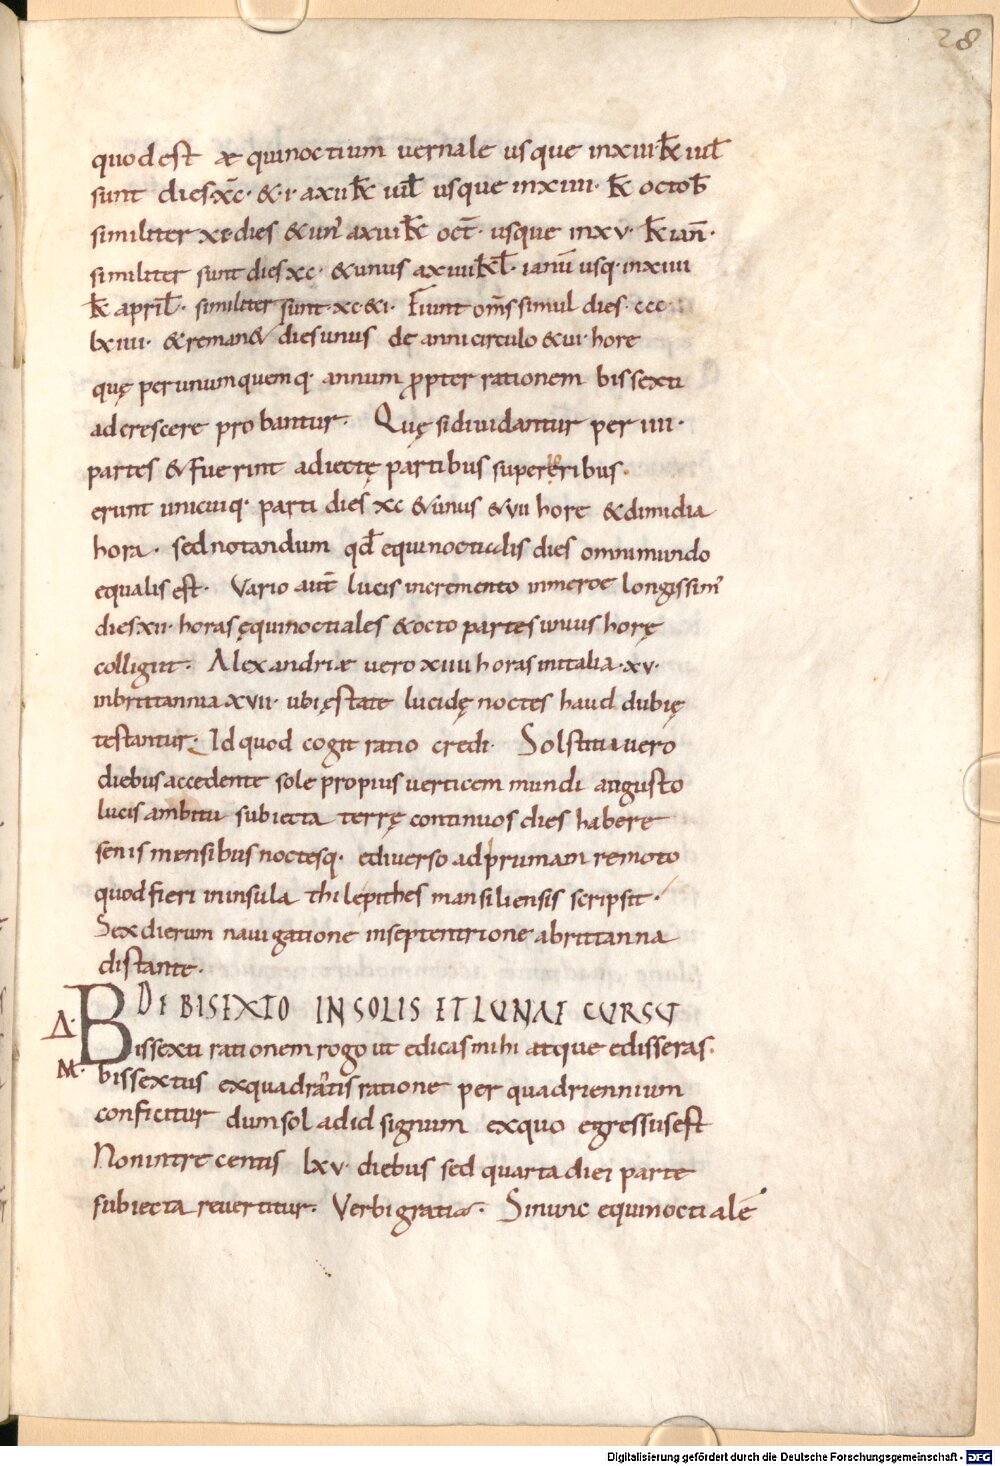 28
quod est aequinoctium uernale usque in xiiii k̄ iul̄
sunt dies· xc̄· & i· a xii k̄ iul̄ usque in xiiii· k̄ octob̄
similiter xc· dies & un' a xiii k̄ oct̄· usque in xv· k̄ ian̄·
similiter sunt dies xc· & unus a xiiii k̄l̄· ianū usq· in xiiii
k̄ april̄· similiter sunt· xc· & i· Fiunt om̄s simul dies· ccc·
lxiiii· & reman& dies unus de anni circulo & vi· hore
quę per unumquemq· annum ꝓpter rationem bissexti
adcrescere probantur· Quę si diuidantur per iiii·
partes & fuerint adiectę partibus supereribus·
erunt unicuiq· parti dies xc & unus & vii hore & dimidia
hora· sed notandum qd̄ equinoctialis dies omni mundo
equalis est· Vario aut̄ lucis incremento in meroe longissim'
dies xii· horas ęquinoctiales & octo partes unius horę
colligit· Alexandriae uero xiiii horas in italia· xv·
in brittannia xvii· ubi ęstate lucidę noctes haud dubię
testantur· Id quod cogit ratio credi· Solstitii uero
diebus accedente sole propius uerticem mundi angusto
lucis ambitu subiecta terrę continuos dies habere
senis mensibus noctesq· ediuerso ad prumam remoto
quod fieri in insula thile pithes mansiliensis scripsit·
Sex dierum nauigatione in septentrione a brittanna
distante·
DE BISEXTO IN SOLIS ET LUNAE CURSU
Δ· Bissexti rationem rogo ut edicas mihi atque edisseras·
M· bissextus ex quadrantis ratione per quadriennium
conficitur dum sol ad id signum ex quo egressus est
Non in trecentis lxv· diebus sed quarta diei parte
subiecta reuertitur· Verbi gratia· Si nunc equinoctialē
Digitalisierung gefördert durch die Deutsche Forschungsgemeinschaft · DFG